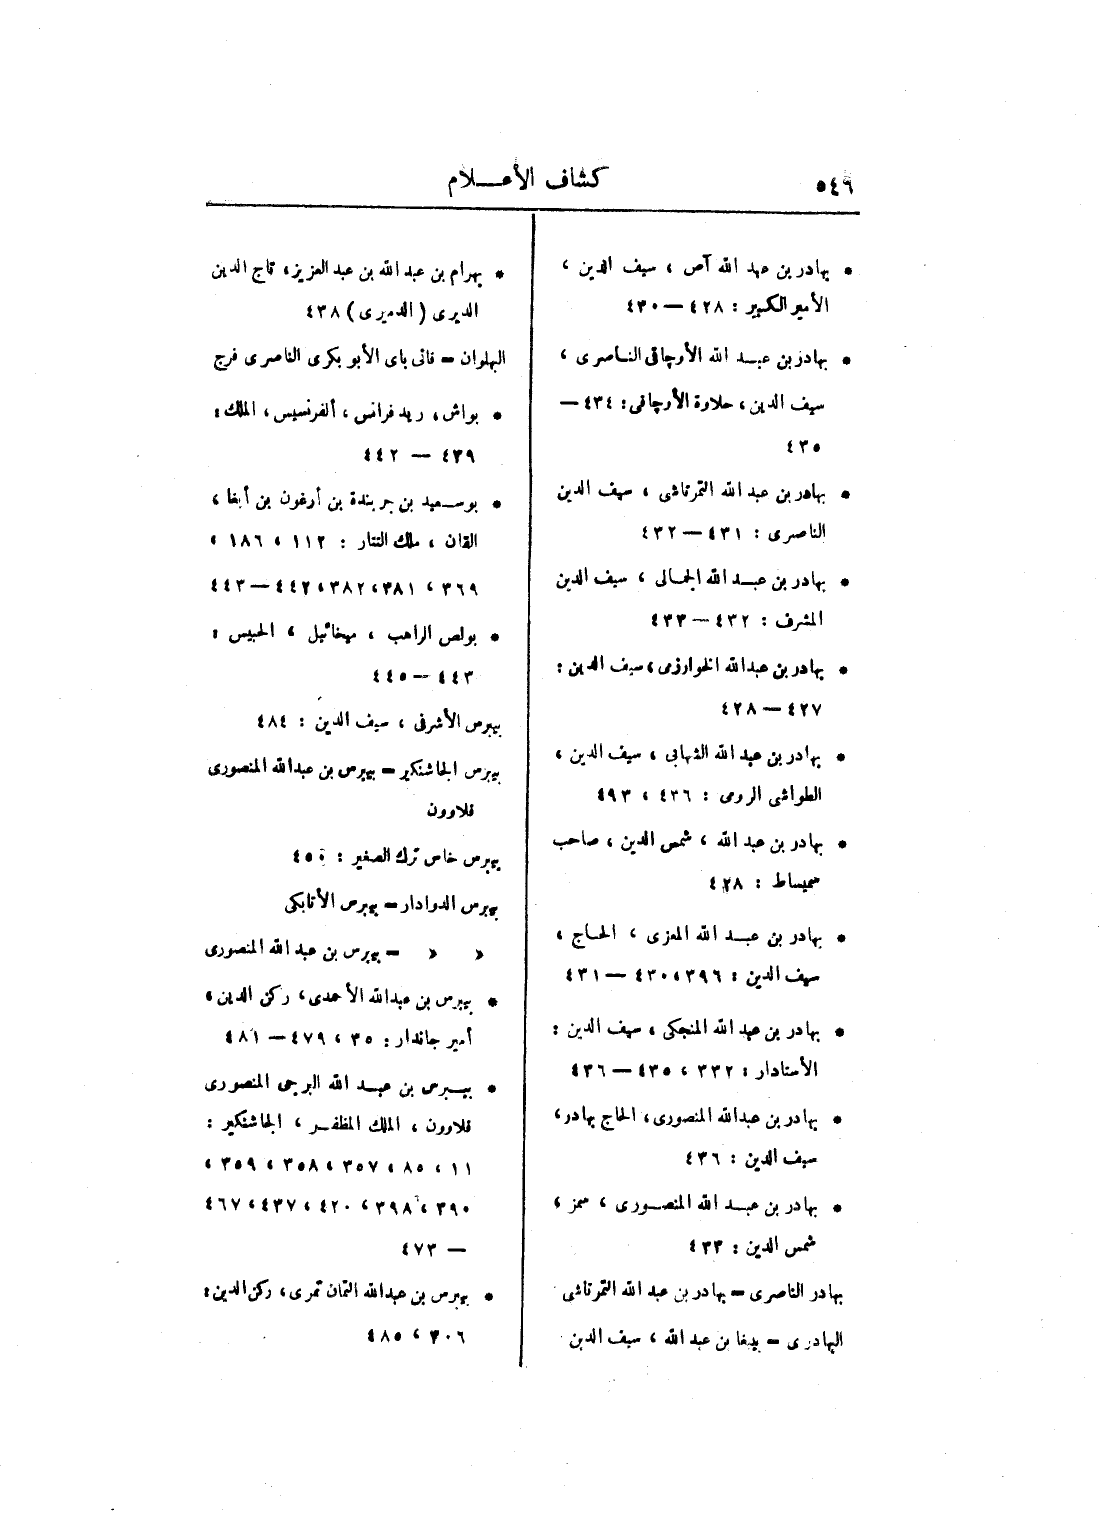 ٥٤٦
كشاف الأعـــلام
* بهادر بن عبد الله آص ، سيف الدين ،
الأمير الكبير : ٤٢٨ — ٤٣٠
* بهادر بن عبــد الله الأوجاقى النـاصرى ،
سيف الدين ، حلاوة الأوجاقى : ٤٣٤ —
٤٣٥
* بهادر بن عبد الله التمرتاشى ، سيف الدين
الناصرى : ٤٣١ — ٤٣٢
* بهادر بن عبــد الله الجمالى ، سيف الدين
المشرف : ٤٣٢ — ٤٣٣
* بهادر بن عبدالله الخوارزمى ، سيف الدين :
٤٢٧ — ٤٢٨
* بهادر بن عبد الله الشهابى ، سيف الدين ،
الطواشى الرومى : ٤٣٦ ، ٤٩٣
* بهادر بن عبد الله ، شمس الدين ، صاحب
سميساط : ٤٢٨
* بهادر بن عبــد الله المعزى ، الحـاج ،
سيف الدين : ٣٩٦ ، ٤٣٠ — ٤٣١
* بهادر بن عبد الله المنجكى ، سيف الدين :
الأستادار : ٣٣٢ ، ٤٣٥ — ٤٣٦
* بهادر بن عبدالله المنصورى ، الحاج بهادر ،
سيف الدين : ٤٣٦
* بهادر بن عبــد الله المنصــورى ، سمز ،
شمس الدين : ٤٣٣
بهادر الناصرى = بهادر بن عبد الله التمرتاشى
البهادرى = بيبغا بن عبد الله ، سيف الدين
* بهرام بن عبد الله بن عبد العزيز ، تاج الدين
الديرى ( الدميرى ) ٤٣٨
البهلوان = قانى باى الأبو بكرى الناصرى فرج
* بواش ، ريد فرانس ، ألفرنسيس ، الملك :
٤٣٩ — ٤٤٢
* بوســعيد بن جربندة بن أرغون بن أبغا ،
القان ، ملك التتار : ١١٢ ، ١٨٦ ،
٣٦٩ ، ٣٨١ ، ٣٨٢ ، ٤٤٢ — ٤٤٣
* بولص الراهب ، ميخائيل ، الحبيس :
٤٤٣ — ٤٤٥
بيبرس الأشرفى ، سيف الدين : ٤٨٤
بيبرس الجاشنكير = بيبرس بن عبدالله المنصورى
قلاوون
بيبرس خاص ترك الصغير :
بيبرس الدوادار = بيبرس الأتابكى
« « = بيبرس بن عبد الله المنصورى
* بيبرس بن عبدالله الأحمدى ، ركن الدين ،
أمير جاندار : ٣٥ ، ٤٧٩ — ٤٨١
* بيــبرس بن عبــد الله البرجى المنصورى
قلاوون ، الملك المظفــر ، الجاشنكير :
١١ ، ٨٥ ، ٣٥٧ ، ٣٥٨ ، ٣٥٩ ،
٣٩٠ ، ٣٩٨ ، ٤٢٠ ، ٤٣٧ ، ٤٦٧
— ٤٧٣
* بيبرس بن عبدالله التمان تمرى ، ركن الدين :
٣٠٦ ، ٤٨٥